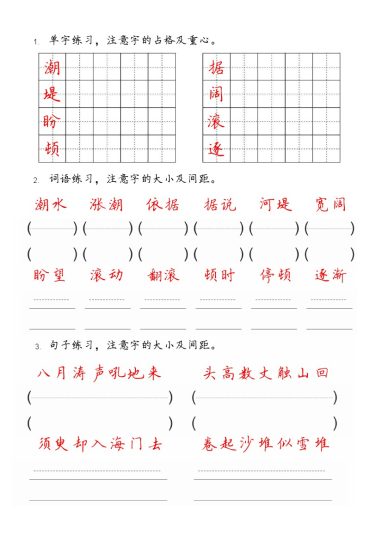 1. 单字练习，注意字的占格及重心。
潮 据
堤 阔
盼 滚
顿 逐
2. 词语练习，注意字的大小及间距。
潮水 涨潮 依据 据说 河堤 宽阔
( ) ( ) ( ) ( ) ( ) ( )
( ) ( ) ( ) ( ) ( ) ( )
盼望 滚动 翻滚 顿时 停顿 逐渐
3. 句子练习，注意字的大小及间距。
八月涛声吼地来 头高数丈触山回
( ) ( )
( ) ( )
须臾却入海门去 卷起沙堆似雪堆